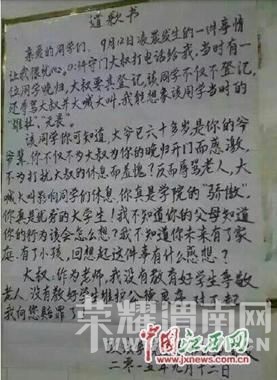 道歉书
亲爱的同学们，9月12日凌晨发生的一件事情
让我很忧心。0:15守门大叔打电话给我，当时有一
位同学晚归，大叔要其登记，该同学不仅不登记，
还辱骂大叔并大喊大叫，我能想象该同学当时的
“雄壮、光景”。
该同学你可知道，大爷已六十多岁是你的爷
爷辈，你不仅不为大叔为你的晚归开门而感激，
不为打扰大叔的休息而羞愧？反而辱骂老人，大
喊大叫影响同学们休息，你真是学院的“骄傲”，
你真是优秀的大学生！我不知道你的父母知道
你的行为该会怎么想？我不知道你未来有了家
庭，有了小孩，回想起这件事有什么感想？
大叔：作为老师，我没有教育好学生尊敬
老人，没有教好学生维护公德，对不起
我向您赔罪了
二〇一五年九月十二日
荣耀渭南网
中国江西网